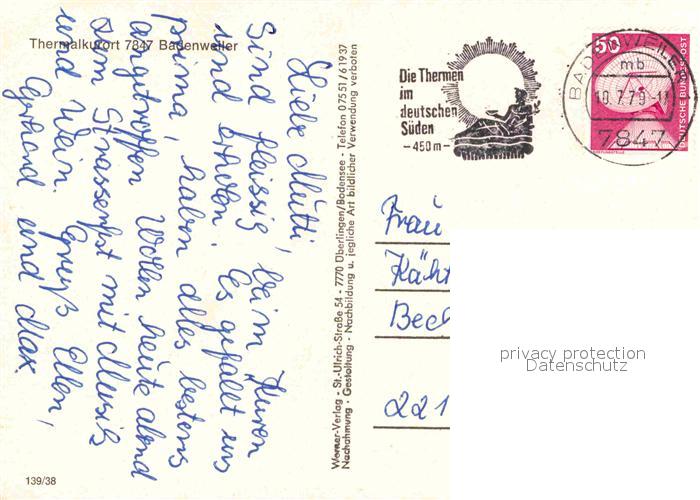 Thermalkurort 7847 Badenweiler
Liebe Mutti,
Sind fleissig beim "Kuren
und erholen. Es gefällt uns
prima, haben alles bestens
angetroffen. Wollen heute abend
zum Strassenfest mit Musik
und Wein. Gruß Ellen,
Gerhard und Max.
Werner-Verlag - St.-Ulrich-Straße 54 - 7770 Überlingen/Bodensee - Telefon 07551/61937
Nachahmung - Gestaltung - Nachbildung u. jegliche Art bildlicher Verwendung verboten
Die Thermen
im
deutschen
Süden
-450m-
50
DEUTSCHE BUNDESPOST
BADENWEILER
mb
10.7.79-11
7847
Frau
Käht
Bech
221
privacy protection
Datenschutz
139/38